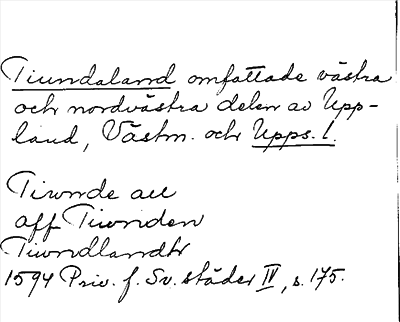 Tiundaland omfattade västra
och nordvästra delen av Upp-
land, Västm. och Upps. l.
Tiwnde all
aff Tiwnden
Tiwndlandh
1594 Priv. f. Sv. städer IV, s. 175.